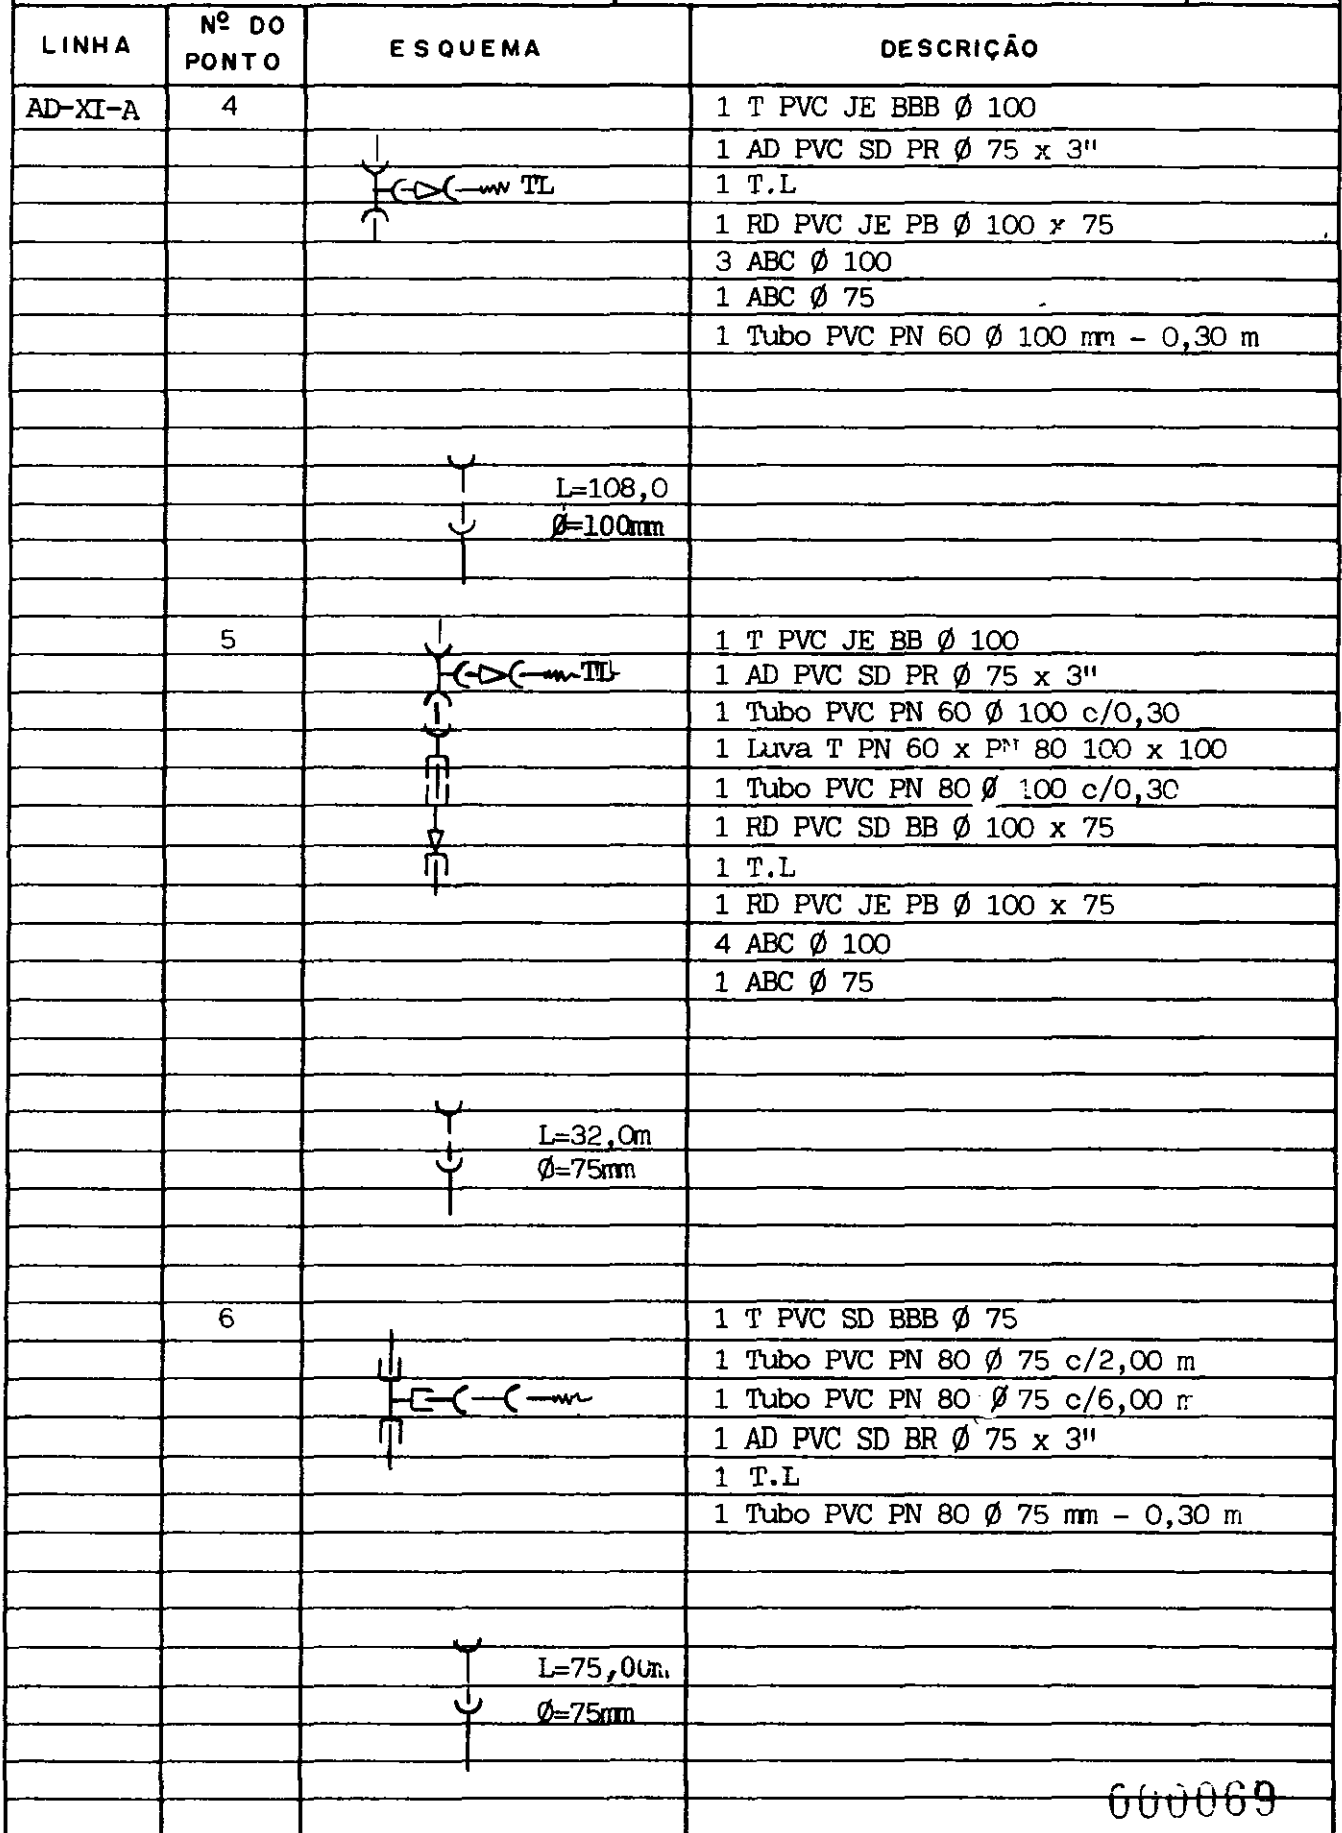 LINHA Nº DO PONTO ESQUEMA DESCRIÇÃO
AD-XI-A 4 1 T PVC JE BBB Ø 100
1 AD PVC SD PR Ø 75 x 3"
TL 1 T.L
1 RD PVC JE PB Ø 100 x 75
3 ABC Ø 100
1 ABC Ø 75
1 Tubo PVC PN 60 Ø 100 mm - 0,30 m
L=108,0
Ø=100mm
5 1 T PVC JE BB Ø 100
TL 1 AD PVC SD PR Ø 75 x 3"
1 Tubo PVC PN 60 Ø 100 c/0,30
1 Luva T PN 60 x PN 80 100 x 100
1 Tubo PVC PN 80 Ø 100 c/0,30
1 RD PVC SD BB Ø 100 x 75
1 T.L
1 RD PVC JE PB Ø 100 x 75
4 ABC Ø 100
1 ABC Ø 75
L=32,0m
Ø=75mm
6 1 T PVC SD BBB Ø 75
1 Tubo PVC PN 80 Ø 75 c/2,00 m
1 Tubo PVC PN 80 Ø 75 c/6,00 m
1 AD PVC SD BR Ø 75 x 3"
1 T.L
1 Tubo PVC PN 80 Ø 75 mm - 0,30 m
L=75,00m
Ø=75mm
000069